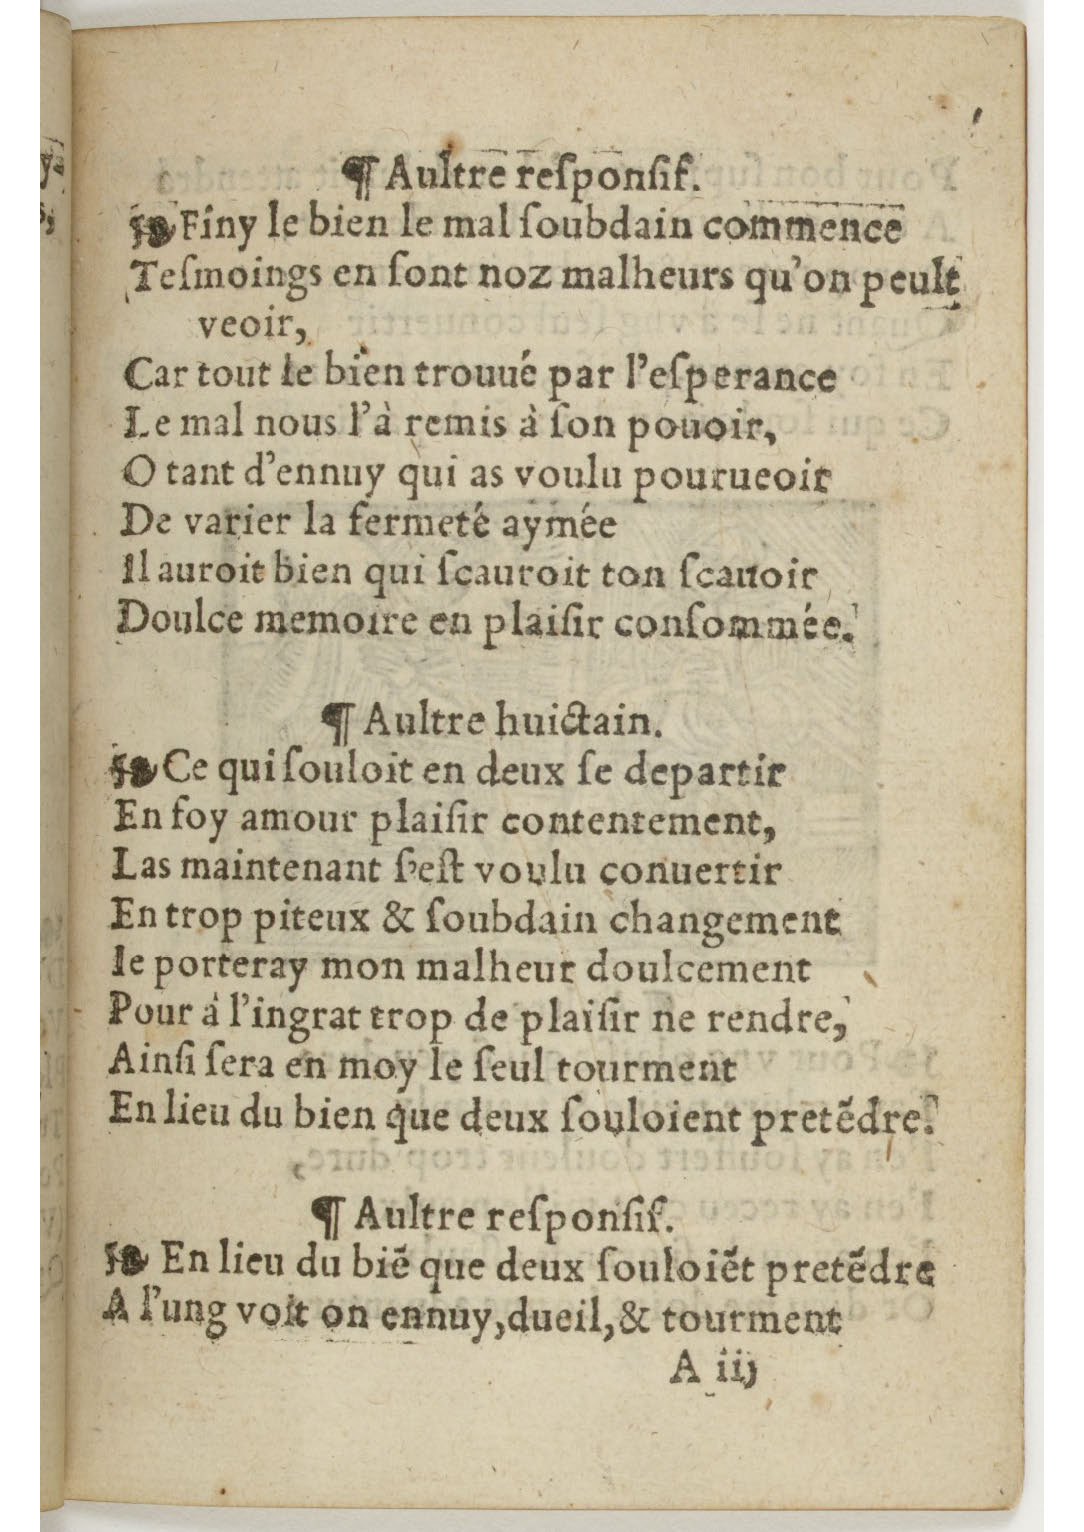 ¶ Aultre reſponſif.
Finy le bien le mal ſoubdain commence
Teſmoings en ſont noz malheurs qu'on peult
veoir,
Car tout le bien trouué par l'eſperance
Le mal nous l'à remis à ſon pouoir,
O tant d'ennuy qui as voulu pourueoir
De varier la fermeté aymée
Il auroit bien qui ſcauroit ton ſcauoir
Doulce memoire en plaiſir conſommée.
¶ Aultre huictain.
Ce qui ſouloit en deux ſe departir
En foy amour plaiſir contentement,
Las maintenant ſ'eſt voulu conuertir
En trop piteux & ſoubdain changement
Ie porteray mon malheur doulcement
Pour à l'ingrat trop de plaiſir ne rendre,
Ainſi ſera en moy le ſeul tourment
En lieu du bien que deux ſouloient pretẽdre.
¶ Aultre reſponſif.
En lieu du biẽ que deux ſouloiẽt pretẽdre
A l'ung voit on ennuy, dueil, & tourment
A iij